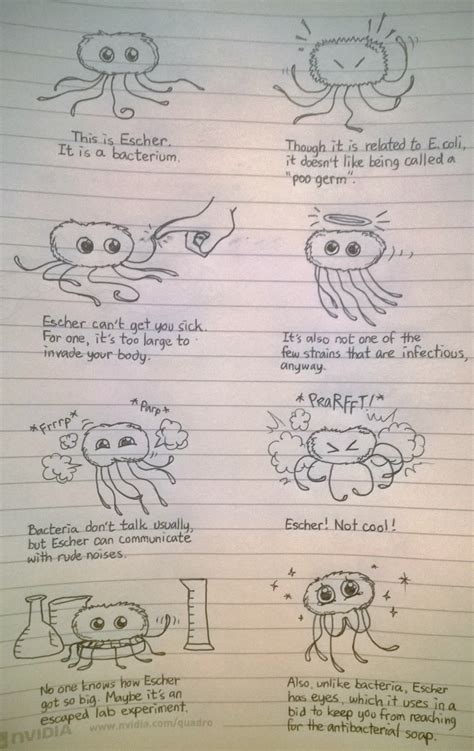 This is Escher.
It is a bacterium.
Though it is related to E. coli,
it doesn't like being called a
"poo germ".
Escher can't get you sick.
For one, it's too large to
invade your body.
It's also not one of the
few strains that are infectious,
anyway.
*Frrrp*
*Parp*
Bacteria don't talk usually,
but Escher can communicate
with rude noises.
*PRARFFT!*
Escher! Not cool!
No one knows how Escher
got so big. Maybe it's an
escaped lab experiment.
Also, unlike bacteria, Escher
has eyes, which it uses in a
bid to keep you from reaching
for the antibacterial soap.
NVIDIA
www.nvidia.com/quadro